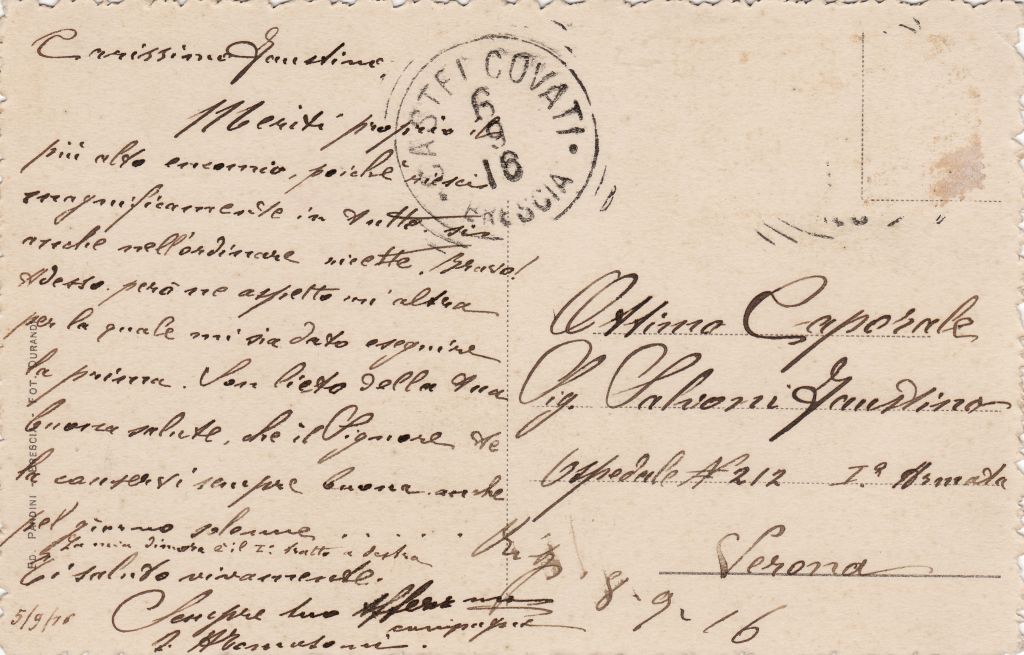 Carissimo Faustino,
Meriti proprio il
più alto encomio, poiche riesci
magnificamente in tutto sin
anche nell'ordinare ricette. Bravo!
Adesso però ne aspetto un'altra
per la quale mi sia dato eseguire
la prima. Son lieto della tua
buona salute, che il Signore te
la conservi sempre buona anche
pel giorno solenne......
La mia dimora è il I° tratto a destra
Ti saluto vivamente.
Sempre tuo aff
compagno
5/9/16
CASTEL COVATI
6 9 16
BRESCIA
Ottimo Caporale
Sig. Salvoni Faustino
Ospedale N° 212 I.a Armata
Verona
8-9-16
ED. PANDINI BRESCIA - FOT. DURAND